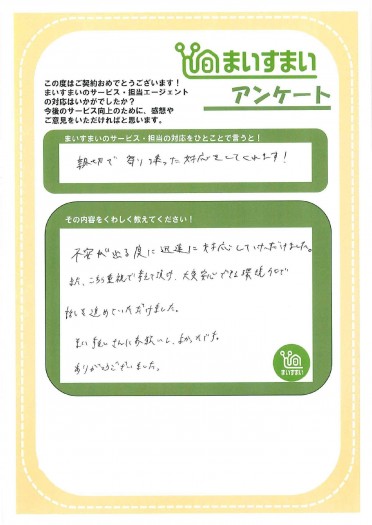 まいすまい
アンケート
この度はご契約おめでとうございます！
まいすまいのサービス・担当エージェント
の対応はいかがでしたか？
今後のサービス向上のために、感想や
ご意見をいただければと思います。
まいすまいのサービス・担当の対応をひとことで言うと！
親切で寄り添った対応をしてくれます！
その内容をくわしく教えてください！
不安が出る度に迅速に対応していただけました。
また、こちら重視で考えて頂け、大変安心できる環境の中で
話を進めていただけました。
まいすまいさんにお願いし、よかったです。
ありがとうございました。
まいすまい